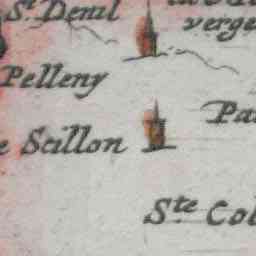 St Denil
verge
Pelleny
Pa
e Scillon
Ste Col